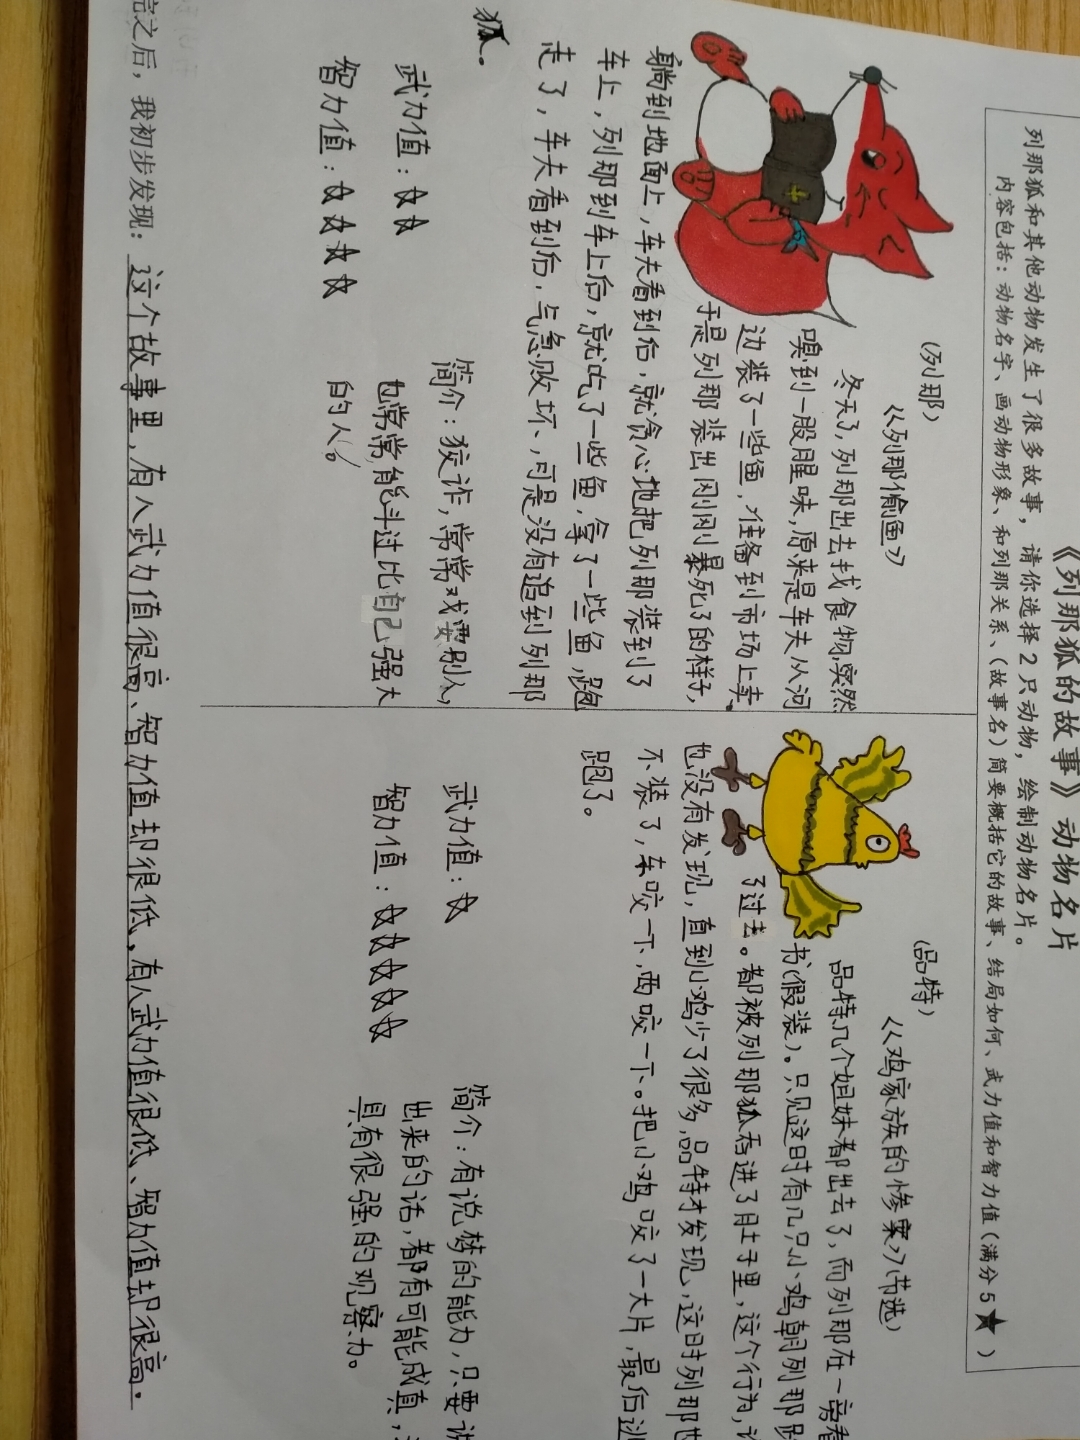 《列那狐的故事》动物名片
列那狐和其他动物发生了很多故事，请你选择2只动物，绘制动物名片。
内容包括：动物名字、画动物形象、和列那关系、（故事名）简要概括它的故事、结局如何、武力值和智力值（满分5★）
（列那）
《列那偷鱼》
冬天了，列那出去找食物，突然
嗅到一股腥味，原来是车夫从河
边装了一些鱼，准备到市场上卖。
于是列那装出刚刚暴死了的样子，
躺到地面上，车夫看到后，就贪心地把列那装到了
车上，列那到车上后，就吃了一些鱼，拿了一些鱼，跑
走了，车夫看到后，气急败坏、可是没有追到列那
狐。
武力值：☆☆
智力值：☆☆☆☆
简介：狡诈，常常戏耍别人，
也常常能斗过比自己强大
的人。
（品特）
《鸡家族的惨案》（节选）
品特几个姐妹都出去了，而列那在一旁看
书（假装）。只见这时有几只小鸡朝列那
了过去。都被列那狐吞进了肚子里，这个行为，
也没有发现，直到小鸡少了很多，品特才发现，这时列那也
不装了，东咬一下，西咬一下。把小鸡咬了一大片，最后逃
跑了。
武力值：☆
智力值：☆☆☆☆☆
简介：有说梦的能力，只要说
出来的话，都有可能成真，
具有很强的观察力。
完之后，我初步发现：这个故事里，有人武力值很高、智力值却很低，有人武力值很低、智力值却很高。